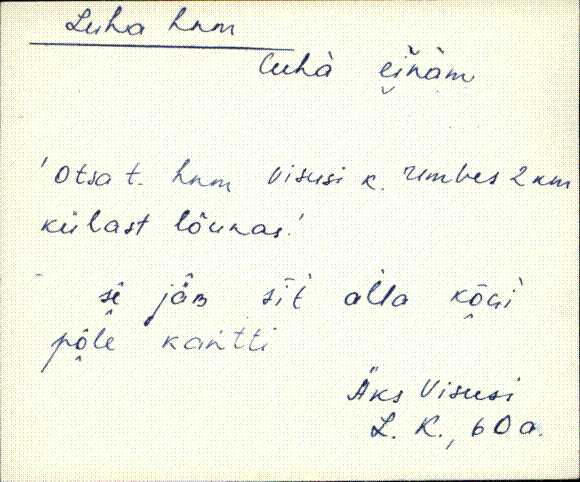 Luha hnm
luhà ei̯nàm
'Otsa t. hnm Visusi k. umbes 2 km
külast lõunas.'
sê jä̂B sìt àlla kõ̭ùi
põ̭lè kaǹtti
Äks Visusi
L. K., 60 a.